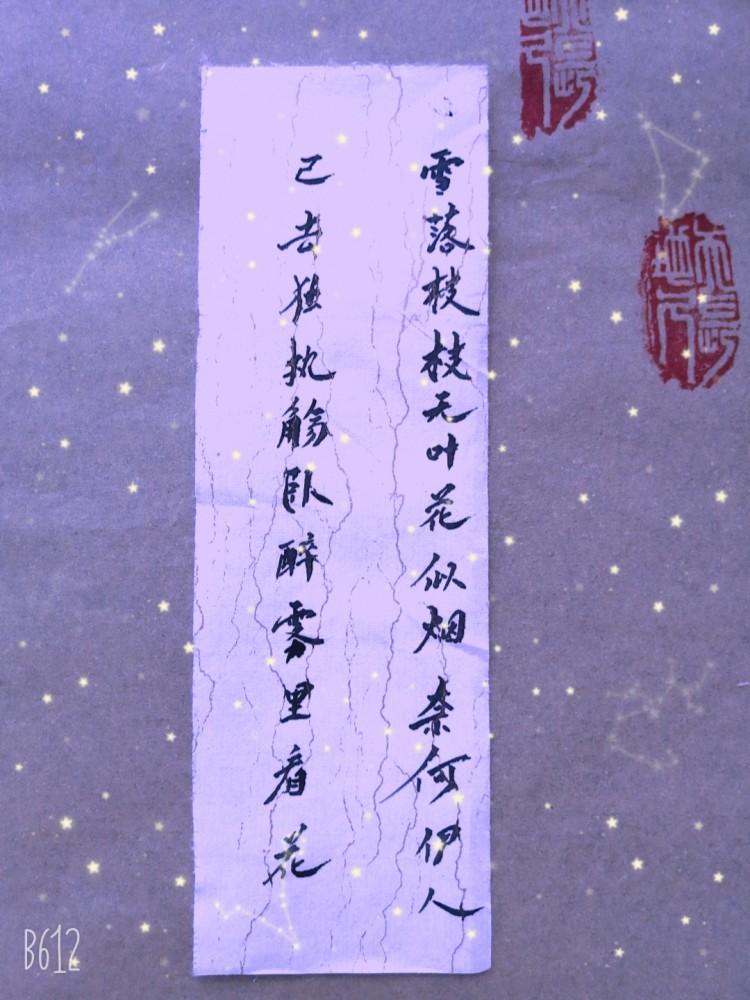 雪落枝枝无叶花似烟奈何伊人
已去独执觞卧醉雾里看花
B612